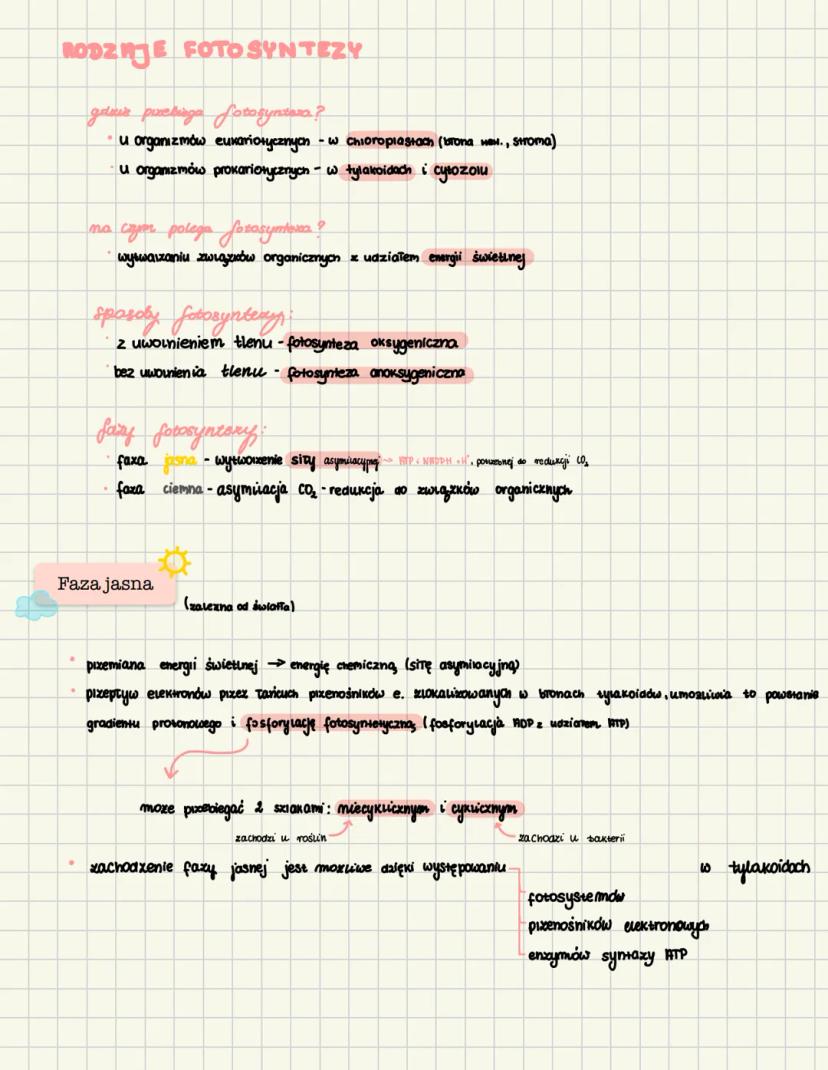 RODZAJE FOTOSYNTEZY
gdzie przebiega fotosynteza?
• u organizmów eukariotycznych - w chloroplastach (błona wew., stroma)
• u organizmów prokariotycznych - w tylakoidach i cytozolu
na czym polega fotosynteza?
• wytwarzaniu związków organicznych z udziałem energii świetlnej
sposoby fotosyntezy:
• z uwolnieniem tlenu - fotosynteza oksygeniczna
• bez uwolnienia tlenu - fotosynteza anoksygeniczna
fazy fotosyntezy:
• faza jasna - wytworzenie siły asymilacyjnej -> ATP i NADPH + H⁺, potrzebnej do redukcji CO₂
• faza ciemna - asymilacja CO₂ - redukcja do związków organicznych
Faza jasna
(zależna od światła)
• przemiana energii świetlnej → energię chemiczną (siłę asymilacyjną)
• przepływ elektronów przez łańcuch przenośników e. zlokalizowanych w błonach tylakoidów, umożliwia to powstanie
gradientu protonowego i fosforylację fotosyntetyczną (fosforylacja ADP z udziałem ATP)
może przebiegać 2 szlakami: niecyklicznym i cyklicznym
zachodzi u roślin zachodzi u bakterii
• zachodzenie fazy jasnej jest możliwe dzięki występowaniu w tylakoidach
fotosystemów
przenośników elektronowych
enzymów syntazy ATP